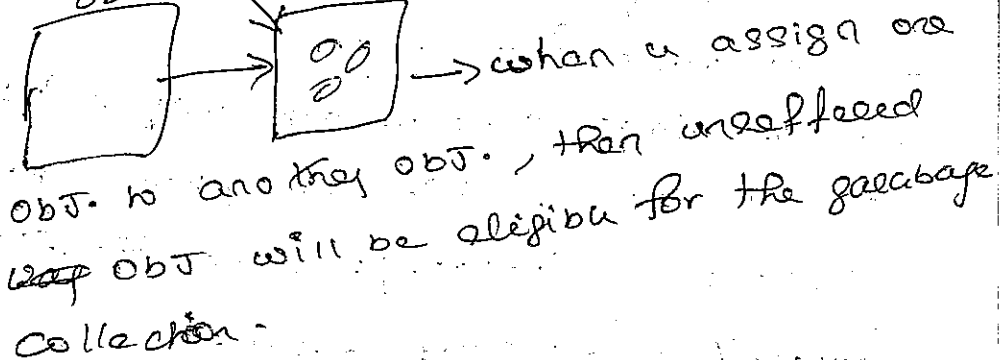 when u assign one
obJ. to another obJ., then unreffered
obJ will be eligible for the garabage
collection.